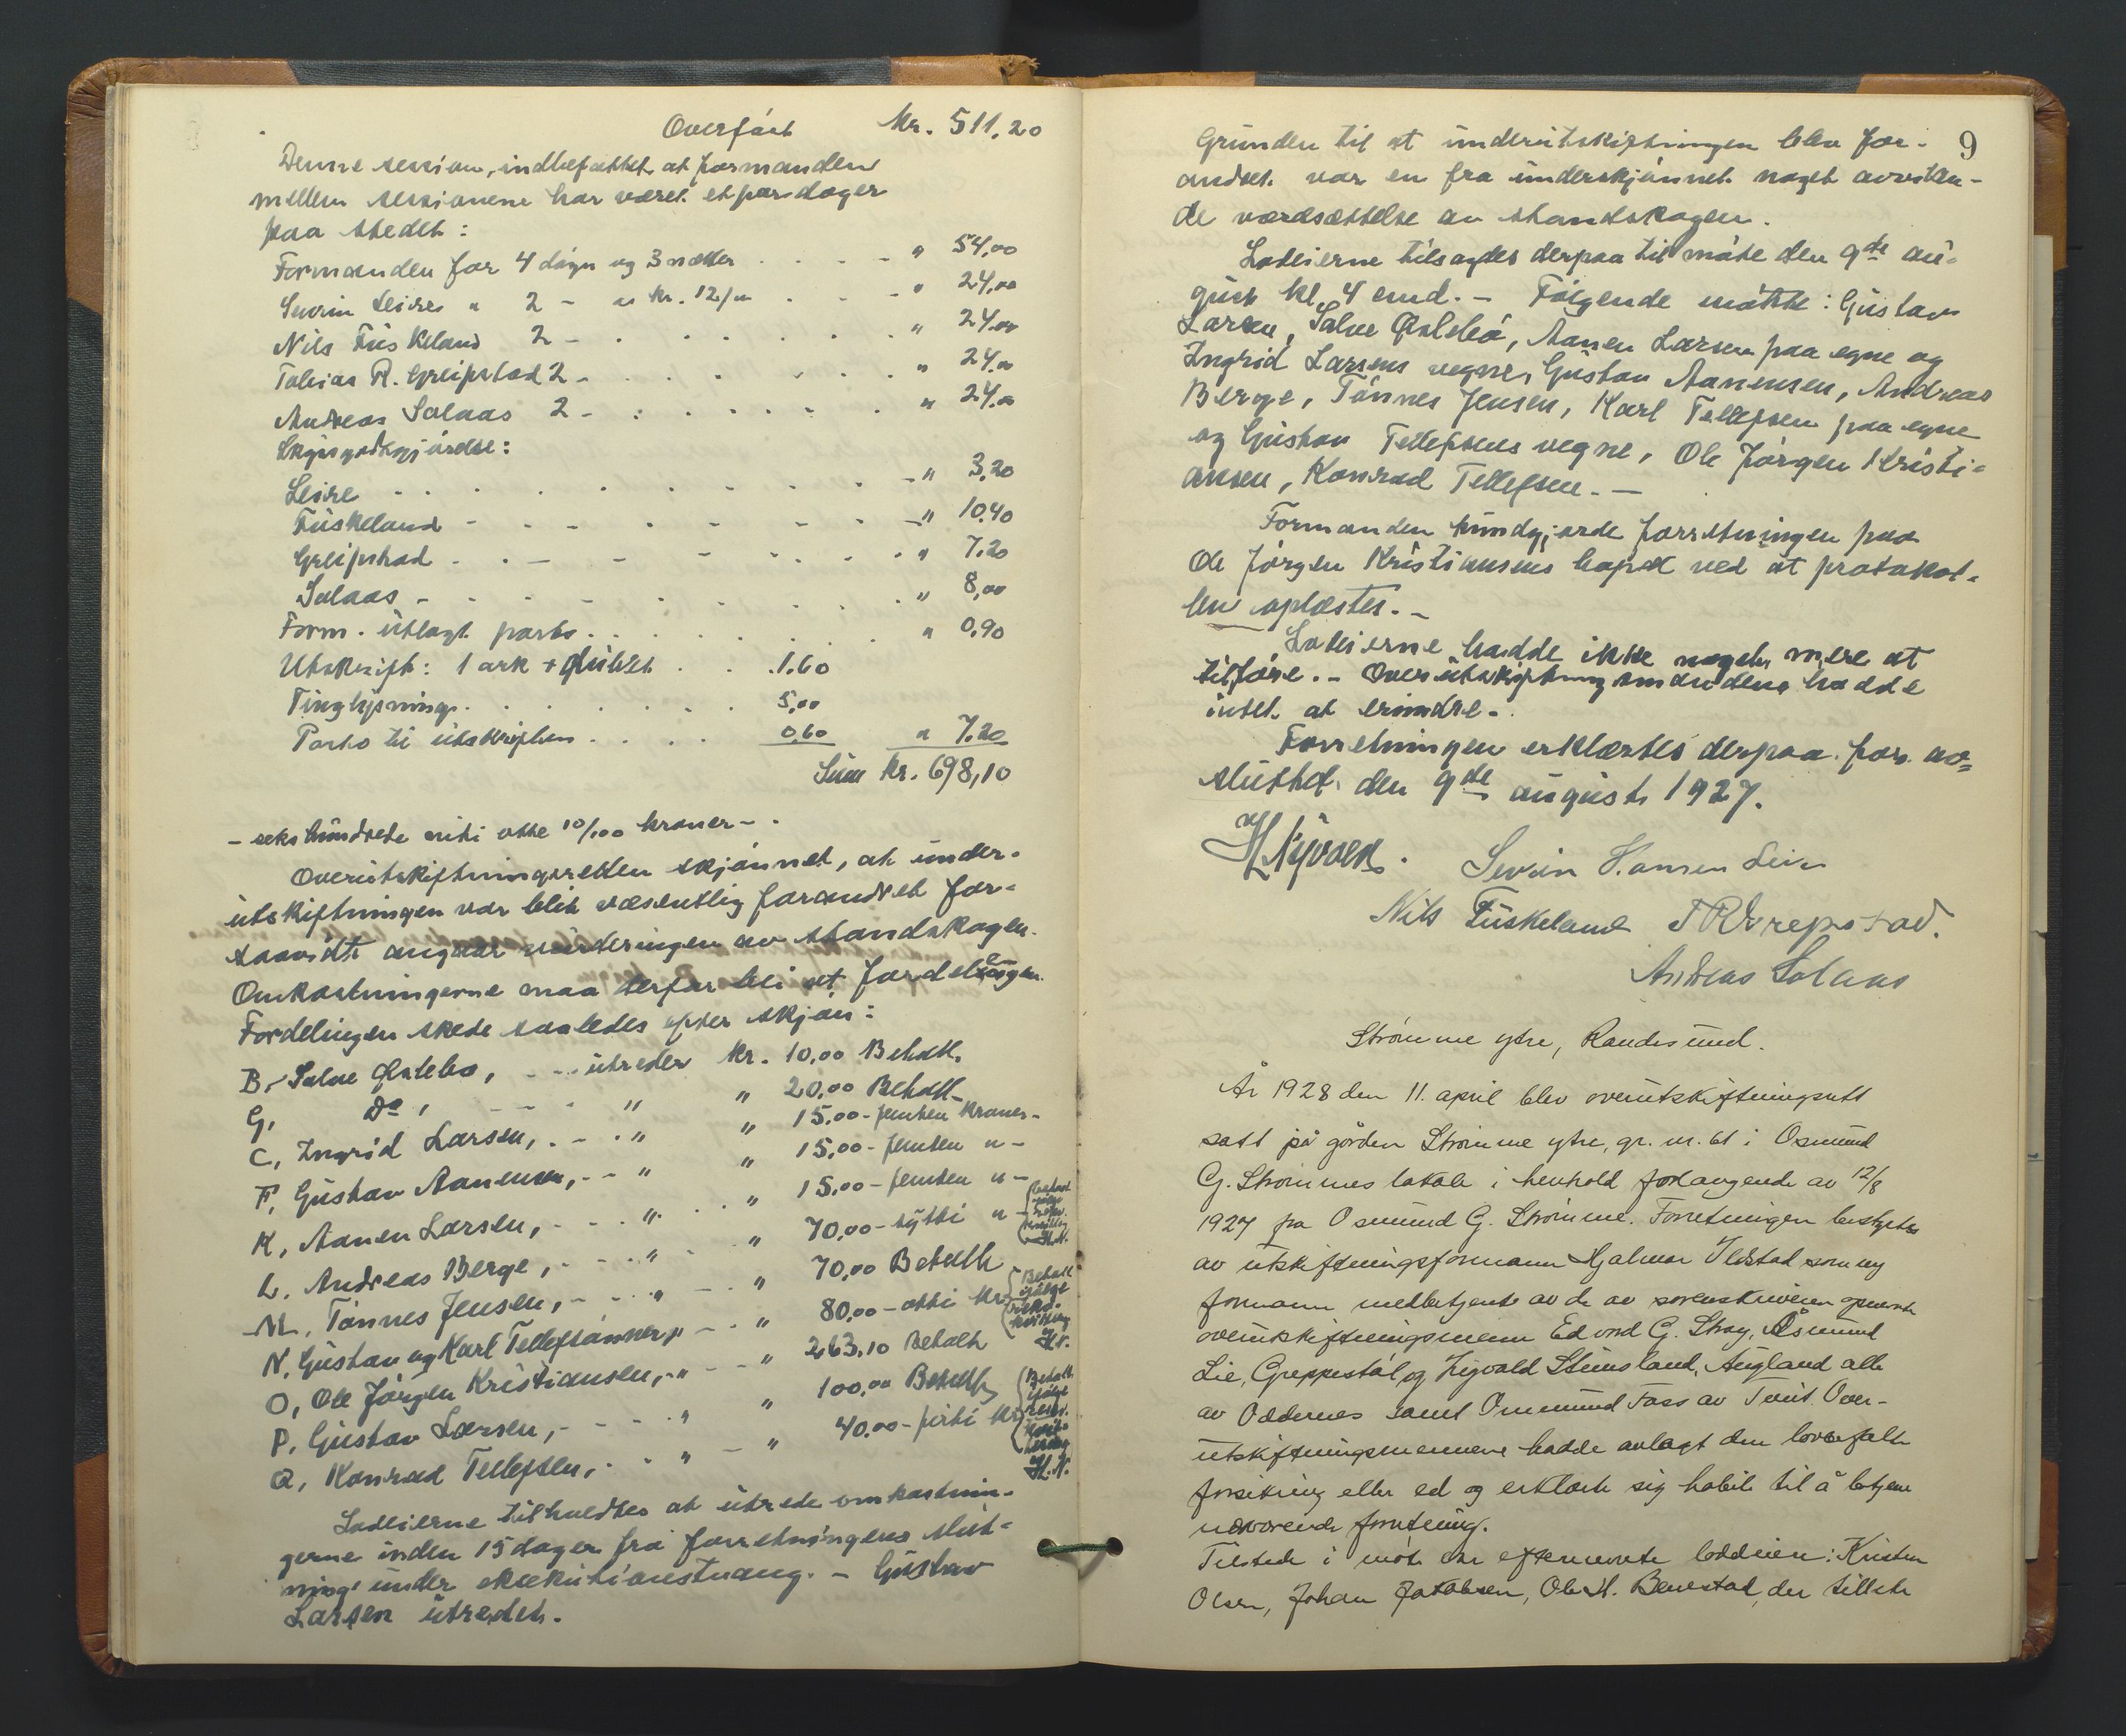 Overført Kr. 511,20
Denne session, indbefattet at formanden
mellem sessionene har været et par dager
paa stedet:
Formanden for 4 døgn og 3 nætter . . . . " 54,00
Severin Leires " 2 - a kr. 12/00 . . . " 24,00
Nils Fuskeland 2 - . . . . . . " 24,00
Tobias R. Greipstad 2 - . . . . . " 24,00
Andreas Solaas 2 - . . . . . . " 24,00
Skyssgodtgjørelse:
Leire - . . . . . . . . - " 3,20
Fuskeland - . . . . . . . - " 10,40
Greipstad . . - - - . . . . " 7,20
Solaas - . . . . . . . . " 8,00
Form. utlagt porto . . . . . . " 0,90
Utskrift: 1 ark + . . 1.60
Tinglysning . . . . . . 5,00
Porto til utskriften . . . . 0,60 " 7.20
Sum kr. 698,10
- seks hundrede nitti otte 10/100 kroner - .
Overutskiftningsretten skjønnet, at under-
utskiftningen var blit væsentlig forandret for-
saavidt angaar vurderingen av standskogen.
Omkostningerne maa derfor bli at fordeles igjen.
Fordelingen skede saaledes efter skjøn:
B, Salve Østebø, - - utreder kr. 10,00 Betalt.
G, Do , - - - " " 20,00 Betalt
C, Ingrid Larsen, . - . " " 15,00 - femten kroner -
F, Gustav Aanensen, - - " " 15,00 - femten " -
K, Aanen Larsen, - . - . " . . " 15,00 - femten " -
L, Andreas Berge, - . - . " . . " 70,00 - sytti " - (Betalt ifølge kvittering H.N.
M, Tønnes Jensen, - - . " - . " 70,00 Betalt
N, Gustav og Karl Tellefsønner, " - . " 80,00 - otti kr. (Betalt ifølge kvittering H.N.
O, Ole Jørgen Kristiansen, - " - - " 263.10 Betalt
P, Gustav Larsen, - - - . " " 100,00 Betalt
Q, Konrad Tellefsen, . . " - " 40.00 - firti kr. (Betalt ifølge kvittering H.N.
Lodeierne tilholdtes at utrede omkostnin-
gerne inden 15 dager fra forretningens slut-
ning under eksekutionstvang. - Gustav
Larsen utredet.
9
Grunden til at underutskiftningen blev for-
andret var en fra underskjønnet noget avviken-
de værdsættelse av standskogen.
Lodeierne tilsagdes derpaa til møte den 9de au-
gust kl. 4 emd. - Følgende møtte: Gustav
Larsen, Salve Østebø, Aanen Larsen paa egne og
Ingrid Larsens vegne, Gustav Aanensen, Andreas
Berge, Tønnes Jensen, Karl Tellefsen paa egne
og Gustav Tellefsens vegne, Ole Jørgen Kristi-
ansen, Konrad Tellefsen. -
Formanden kundgjorde forretningen paa
Ole Jørgen Kristiansens bopæl ved at protokol-
len oplæstes. -
Lodeierne hadde ikke noget mere at
tilføre. - Overutskiftningsmændene hadde
intet at erindre. .
Forretningen erklærtes derpaa for av-
sluttet den 9de august 1927.
H Nyvoll. Sevrin Hansen Leire
Nils Fuskeland T R Greipstad.
Andreas Solaas
Strømme ytre, Randesund.
År 1928 den 11. april blev overutskiftningsrett
satt på gården Strømme ytre, gr. nr. 61 i Osmund
G. Strømmes lokale i henhold forlangende av 12/8
1927 fra Osmund G. Strømme. Forretningen bestyrtes
av utskiftningsformann Hjalmar Ildstad som ny
formann medbetjent av de av sorenskriveren opnevnte
overutskiftningsmenn Edvard G. Stray, Åsmund
Lie, Greppestøl og Sigvald Stensland, Augland alle
av Oddernes samt Ommund Foss av Tveit. Over-
utskiftningsmennene hadde avlagt den lovbefalte
forsikring eller ed og erklærte sig habile til å betjene
nærværende forretning.
Tilstede i møte var efternevnte loddeiere: Kristen
Olsen, Johan Jakobsen, Ole H. Benestad, der tillike